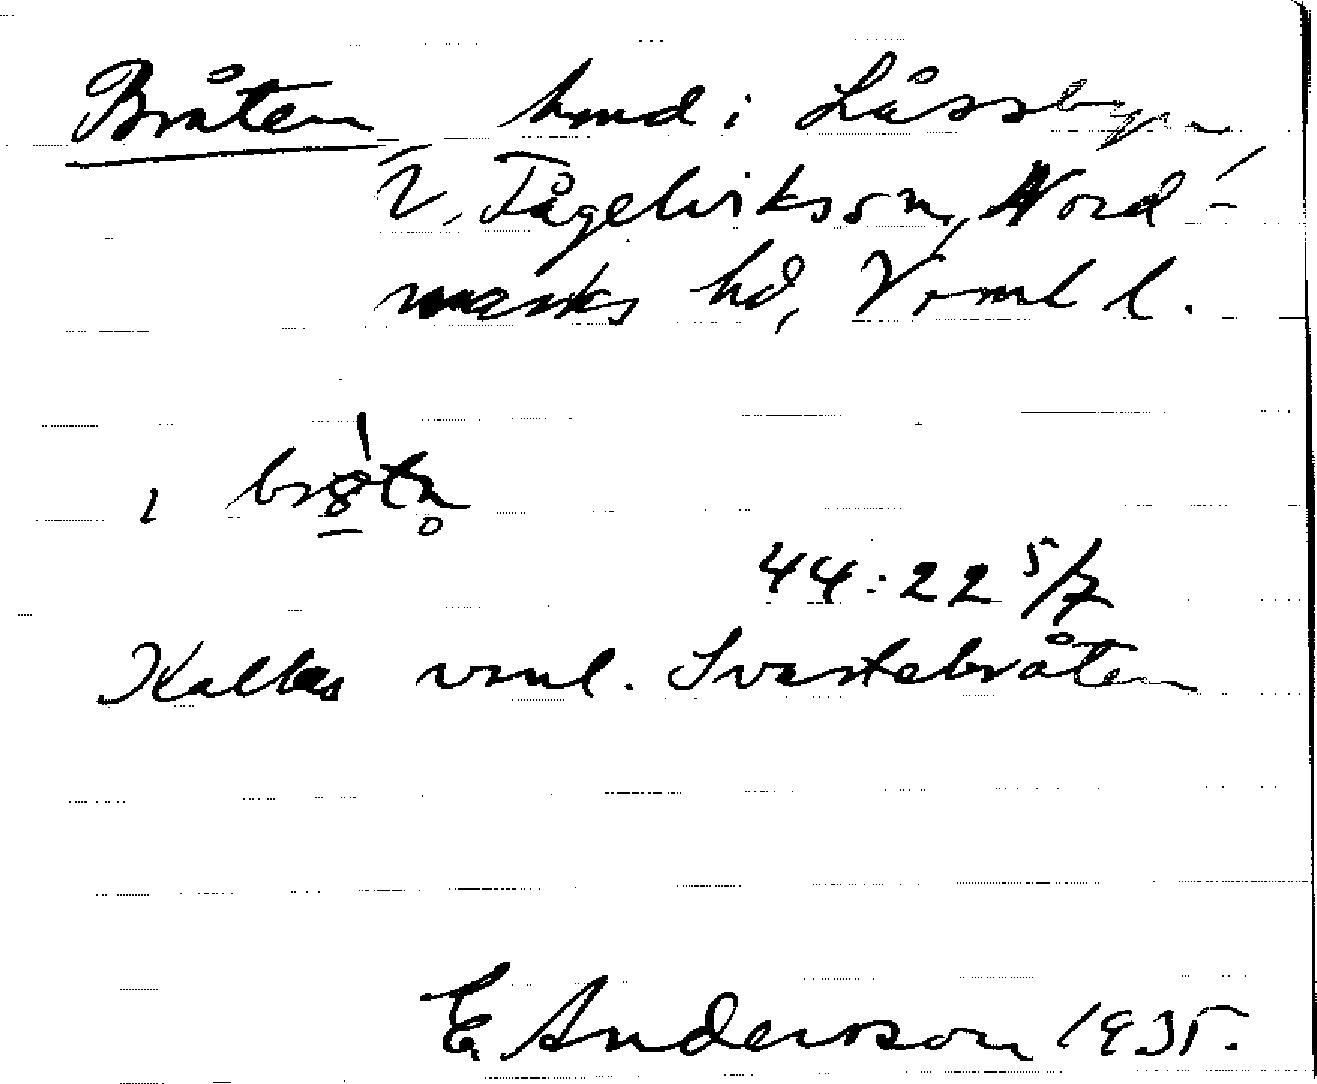 Bråten, hmd i Låssbyn,
V. Fågelvikssn, Nord-
marks hd, Vrml l.
i
44:22 5/7
Kallas vanl. Svartebråten
E Andersson 1935.